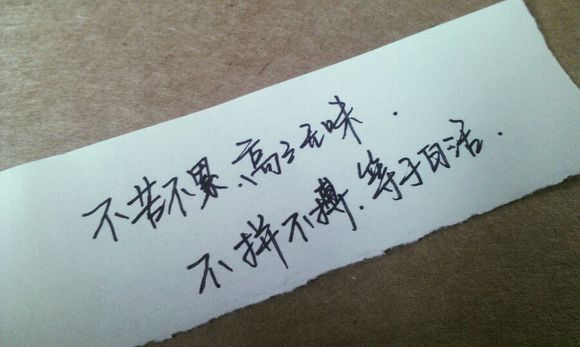 不苦不累.高三无味.
不拼不搏.等于白活.